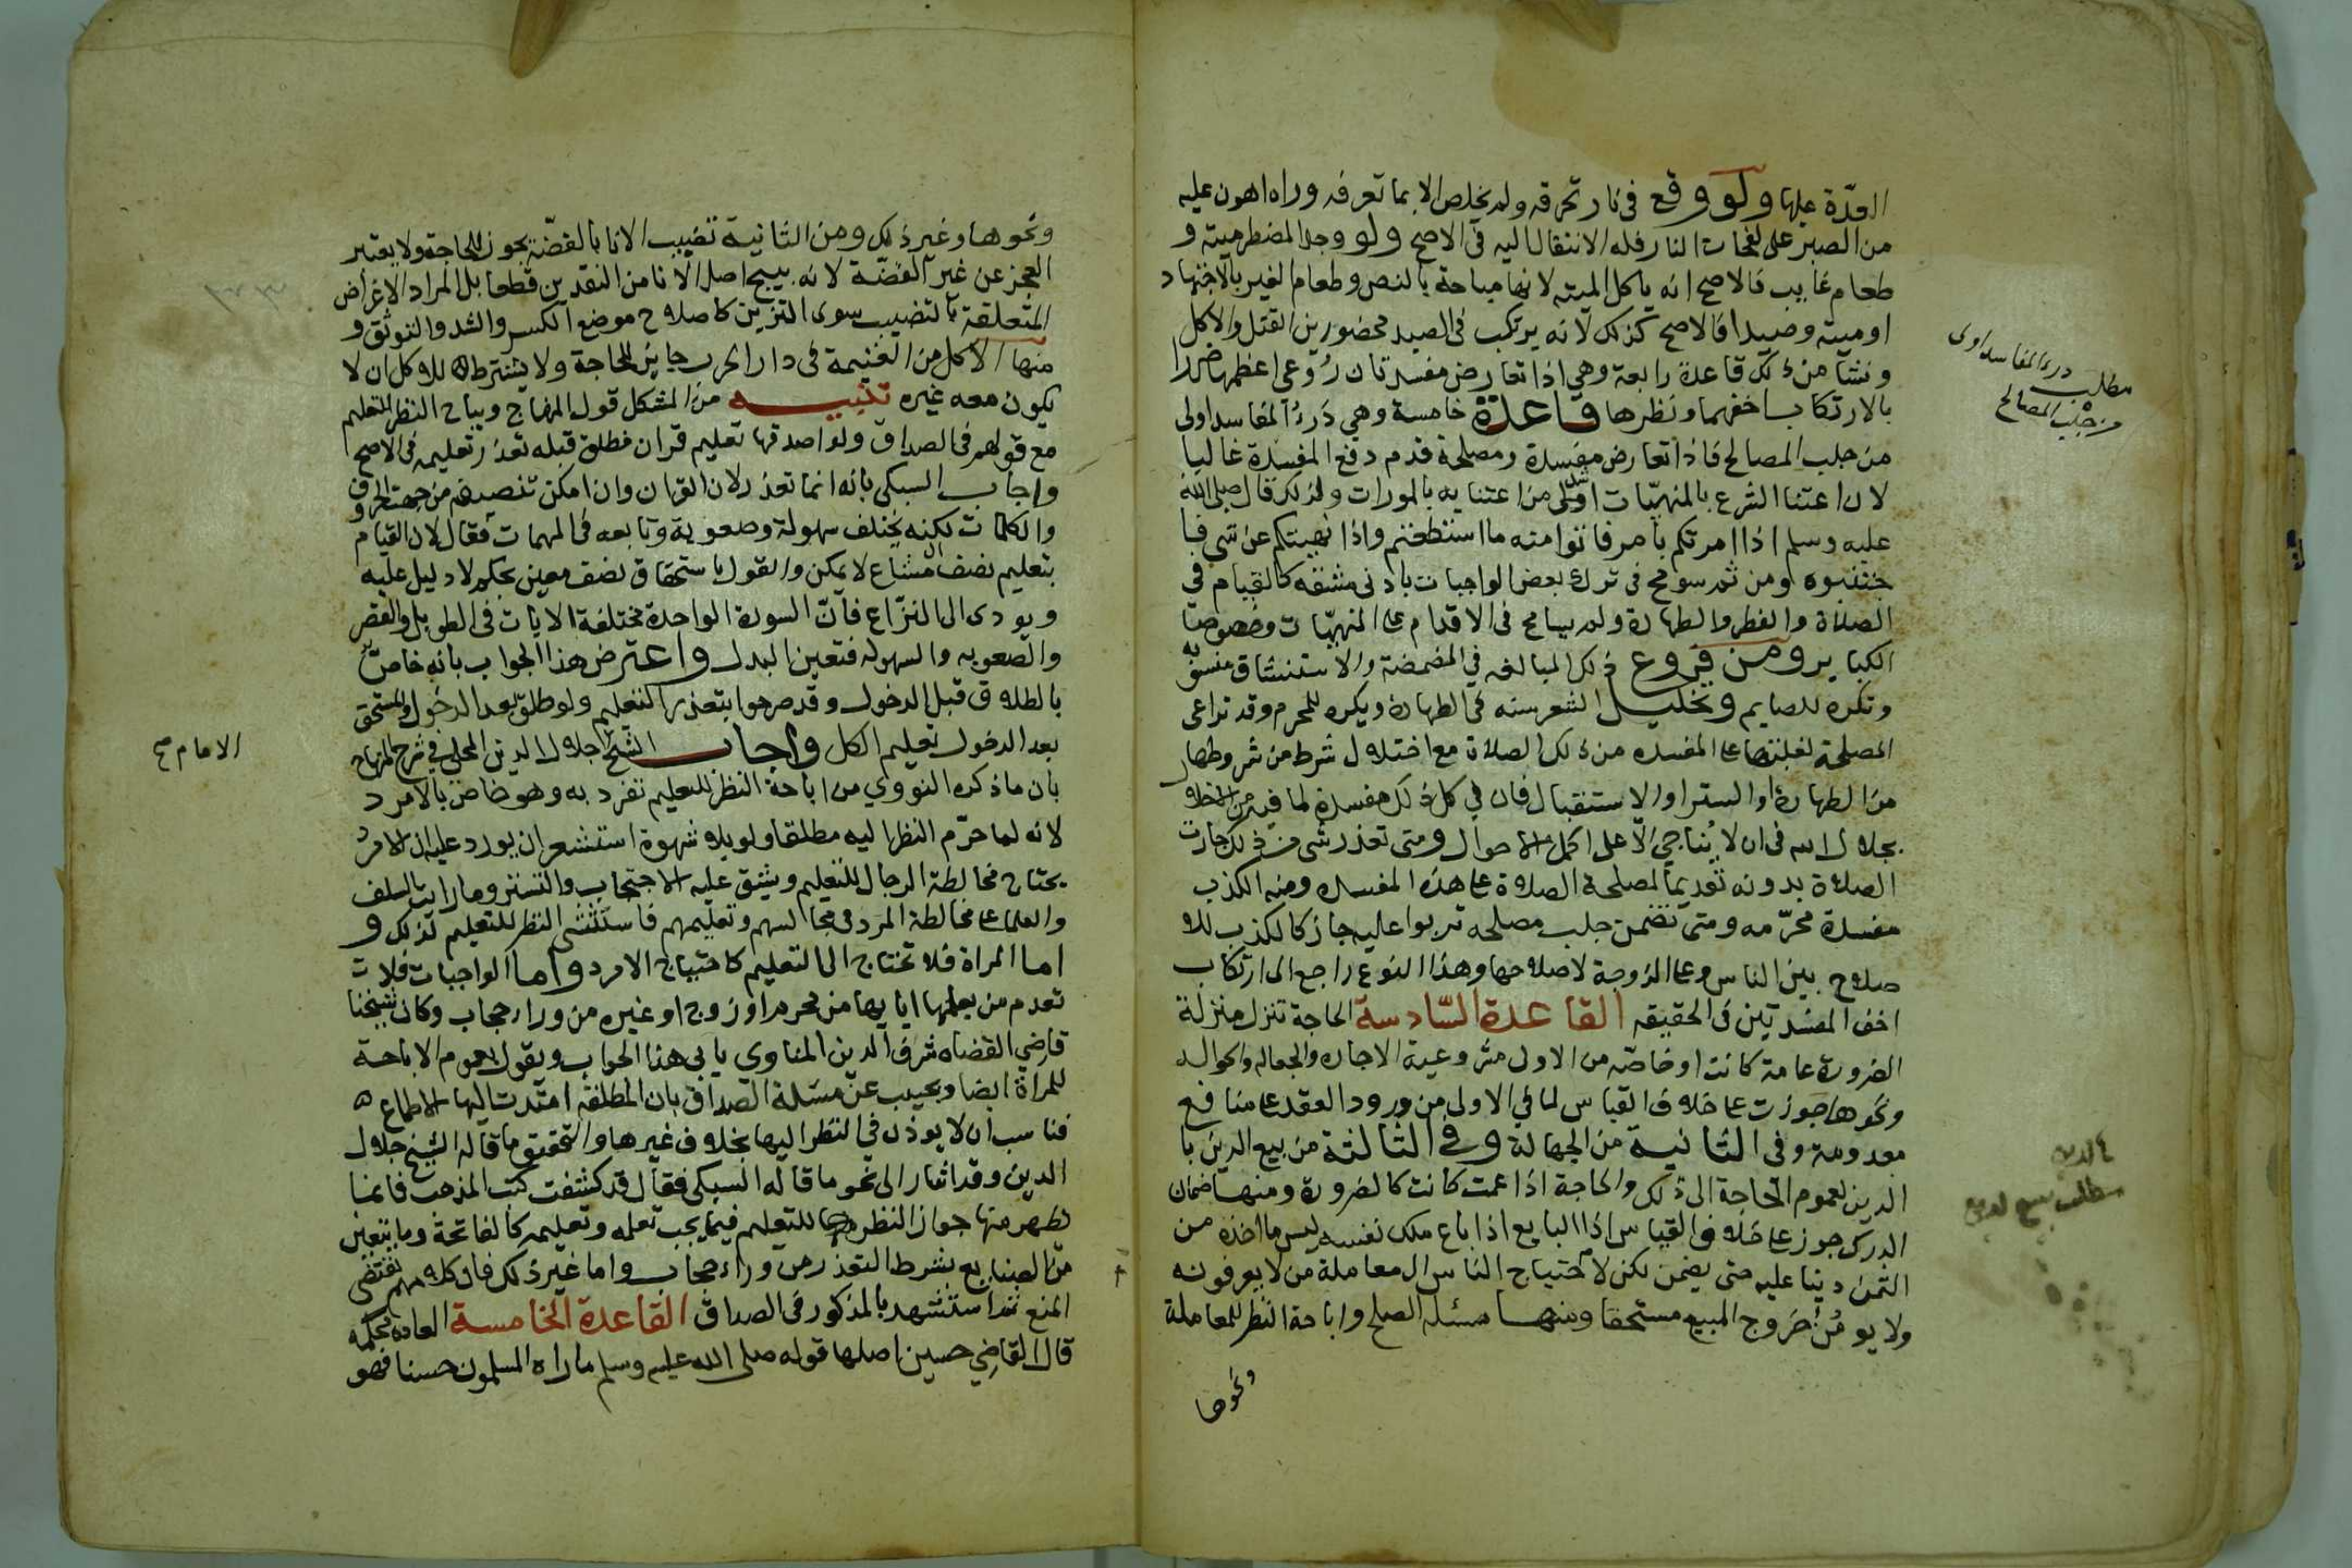 القدرة عليها ولو وقع في نار تحرقه ولم يخلص الا بما تعرفه وراه اهون عليه
من الصبر على لفحات النار فله الانتقال اليه في الاصح ولو وجد المضطر ميتة و
طعام غايب فالاصح انه ياكل الميته لانها مباحة بالنص وطعام الغير بالاجتهاد
او ميته وصيدا فالاصح كذلك لانه يرتكب في الصيد محضورين القتل والاكل
ونشأ من ذلك قاعدة رابعة وهي اذا تعارض مفسدتان رُوعي اعظمها ضررا
بالارتكاب اخفهما ونظرها قاعدة خامسة وهي دَرءُ المفاسد اولى
من جلب المصالح فاذا تعارض مفسدة ومصلحة قدم دفع المفسدة غالبا
لان اعتنا الشرع بالمنهيّات اشد من اعتنايه بالمورات ولذلك قال صلى الله
عليه وسلم اذا امرتكم بامر فاتوا منه ما استطعتم واذا نهيتكم عن شي فا
جتنبوه ومن ثم سومح في ترك بعض الواجبات بادنى مشقه كالقيام في
الصلاة والفطر والطهارة ولم يسامح في الاقدام على المنهيّات وخصوصا
الكباير ومن فروع ذلك المبالغه في المضمضة والاستنشاق منسونه
وتكره للصايم وتخليل الشعر سنه في الطهارة ويكره للمحرم وقد تراعى
المصلحة لغلبتها على المفسده من ذلك الصلاة مع اختلال شرط من شروطها
من الطهارة او الستر او الاستقبال فان في كل ذلك مفسدة لما فيه من الاخلال
بجلال الله في ان لا يُناجي الا على اكمل الاحوال ومتى تعذر شي من ذلك جازت
الصلاة بدونه تقديما لمصلحة الصلاة على هذه المفسده ومنه الكذب
مفسدة محرّمه ومتى تضمن جلب مصلحه تربوا عليه جاز كالكذب للا
صلاح بين الناس وعلى الزوجة لاصلاحها وهذا النوع راجع الى ارتكاب
اخف المفسدتين في الحقيقه القاعدة السّادسة الحاجة تنزل منزلة
الضرورة عامة كانت او خاصّه من الاولى مشروعية الاجاره والجعاله والحواله
ونحوها جوزت على خلاف القياس لما في الاولى من ورود العقد على منافع
معدومة وفي الثانية من الجهالة وفي الثالثة من بيع الدين با
الدين لعموم الحاجة الى ذلك والحاجة اذا عمت كانت كالضرورة ومنها ضمان
الدرك جوز على خلاف القياس اذا البايع اذا باع ملك نفسه ليس ما اخذه من
الثمن دينا عليه حتى يضمن لكن لاحتياج الناس الى معاملة من لا يعرفونه
ولا يومَن خروج المبيع مستحقا ومنها مسئلة الصلح واباحة النظر للمعاملة
ونحوها
مطلب درء المفاسد اولى
من جلب المصالح
مطلب بيع الدين
ونحوها وغير ذلك ومن الثانية تضبيب الانا بالفضّة يجوز للحاجة ولا يعتبر
العجز عن غير الفضّة لانه يبيح اصل الانا من النقدين قطعا بل المراد الاغراض
المتعلقة بالتضبيب سوى التزين كاصلاح موضع الكسر والشد والتوثق و
منها الاكل من الغنيمة في دار الحرب جايز للحاجة ولا يشترط للاكل ان لا
يكون معه غيره تنبيه من المشكل قول المنهاج ويباح النظر لتعليم
مع قولهم في الصداق ولو اصدقها تعليم قران فطلق قبله تعذّر تعليمه في الاصح
واجاب السبكي بانه انما تعذر لان القران وان امكن تنصيفه من جهة الحروف
والكلمات لكنه يختلف سهولة وصعوبة وتابعه في المهمات فقال لان القيام
بتعليم نصف مشاع لا يمكن والقول باستحقاق نصف معين تحكم لا دليل عليه
ويودى الى النزاع فانّ السورة الواحدة مختلفة الايات في الطول والقصر
والصعوبه والسهوله فتعين البدل واعترض هذا الجواب بانه خاصّ
بالطلاق قبل الدخول وقد صرحوا بتعذر التعليم ولو طلق بعد الدخول والمستحق
بعد الدخول تعليم الكل واجاب الشيخ جلال الدين المحلي في شرح المنهاج
بان ما ذكره النووي من اباحة النظر للتعليم تفرد به وهو خاص بالامرد
لانه لما حرّم النظر اليه مطلقا ولو بلا شهوة استشعر ان يورد عليه ان الامرد
يحتاج مخالطة الرجال للتعليم ويشق عليه الاحتجاب والتستر وما زالت السلف
والعلما على مخالطة المرد في مجالسهم وتعليمهم فاستثنى النظر للتعليم لذلك و
اما المراة فلا تحتاج الى التعليم كاحتياج الامرد واما الواجبات فلا ت
تعدم من يعلمها اياها من محرم او زوج او غيره من وراء حجاب وكان شيخنا
قاضي القضاه شرف الدين المناوي يابى هذا الجواب ويقول بعموم الاباحة
للمراة ايضا ويجيب عن مسئلة الصداق بان المطلقه امتدت اليها الاطماع
فناسب ان لا يوذن في النظر اليها بخلاف غيرها والتحقيق ما قاله الشيخ جلال
الدين وقد اشار الى نحو ما قاله السبكي فقال قد كشفت كتب المذهب فانما
يظهر منها جواز النظر للتعليم فيما يجب تعلمه وتعليمه كالفاتحة وما يتعين
من الصنايع بشرط التعذر من وراء حجاب واما غير ذلك فان كلامهم يقتضى
المنع ثم استشهد بالمذكور في الصداق القاعدة الخامسة العاده محكمه
قال القاضي حسين اصلها قوله صلى الله عليه وسلم ماراه المسلمون حسنا فهو
الامام صح